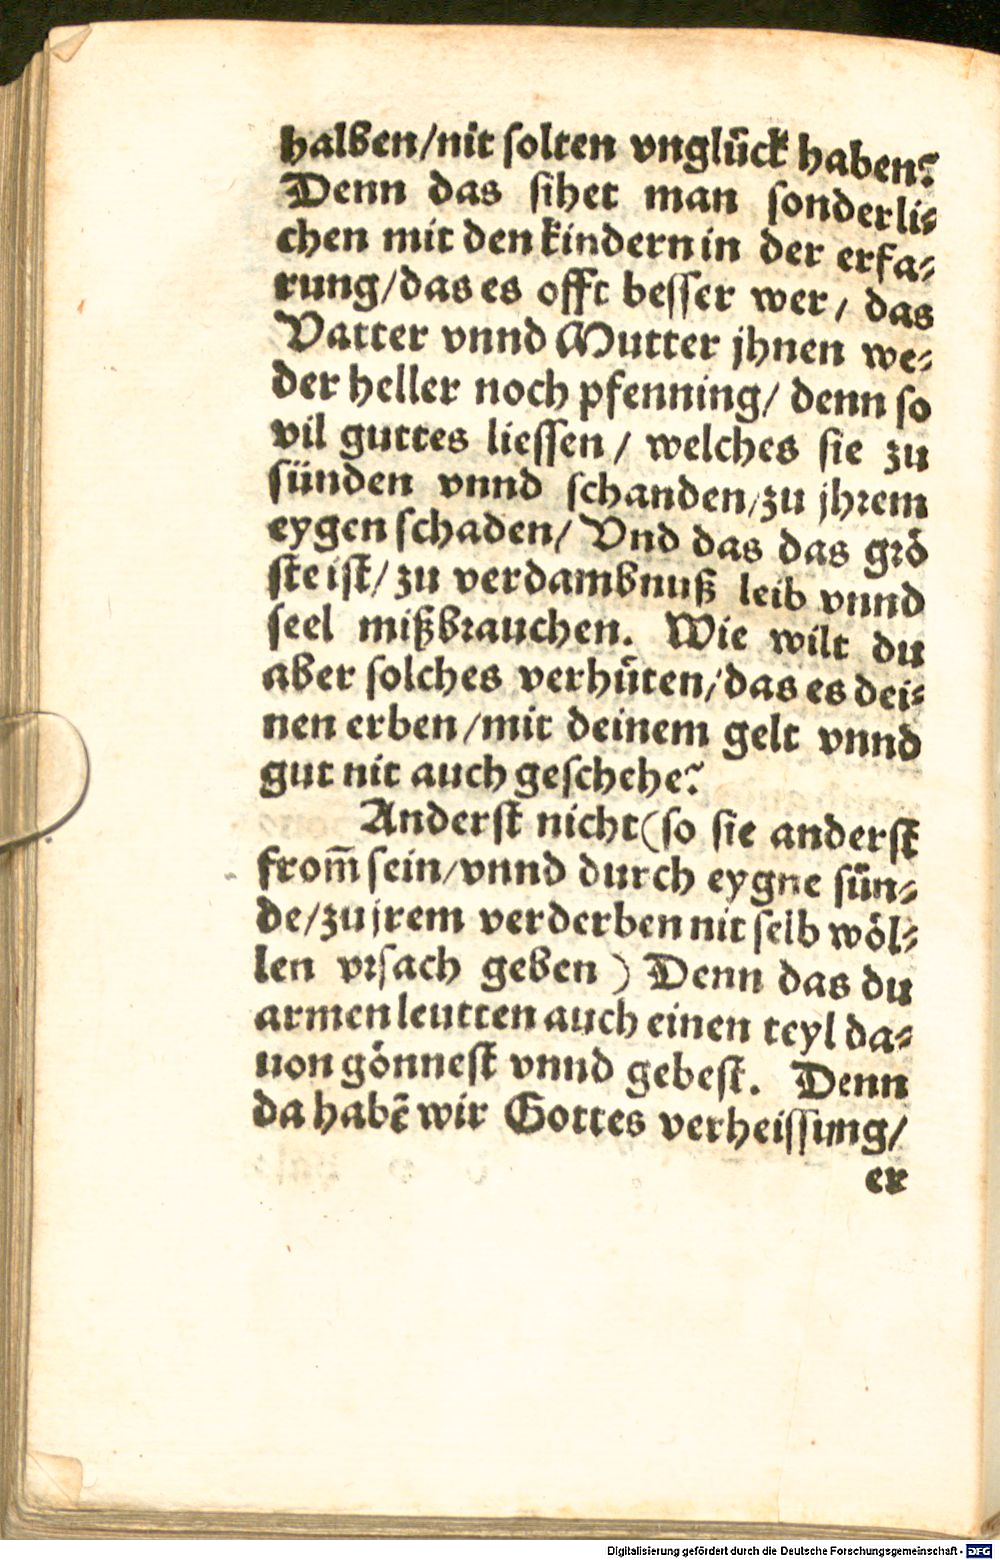 halben/nit ſolten vnglück haben?
Denn das ſihet man ſonderli⸗
chen mit den kindern in der erfa⸗
rung/das es offt beſſer wer/ das
Vatter vnnd Mutter jhnen we⸗
der heller noch pfenning/ denn ſo
vil guttes lieſſen/ welches ſie zu
ſünden vnnd ſchanden/zu jhrem
eygen ſchaden/ Vnd das das grö
ſte iſt/ zu verdambnuß leib vnnd
ſeel mißbrauchen. Wie wilt du
aber ſolches verhüten/das es dei⸗
nen erben/mit deinem gelt vnnd
gut nit auch geſchehe?
Anderſt nicht(ſo ſie anderſt
from̃ ſein/vnnd durch eygne ſün⸗
de/zu jrem verderben nit ſelb wöl⸗
len vrſach geben) Denn das du
armen leutten auch einen teyl da⸗
uon gönneſt vnnd gebeſt. Denn
da habẽ wir Gottes verheiſſung/
er
Digitalisierung gefördert durch die Deutsche Forschungsgemeinschaft - DFG